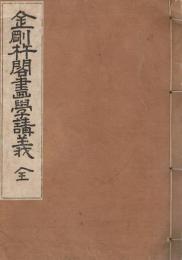 金剛杵閣畫學講義 全